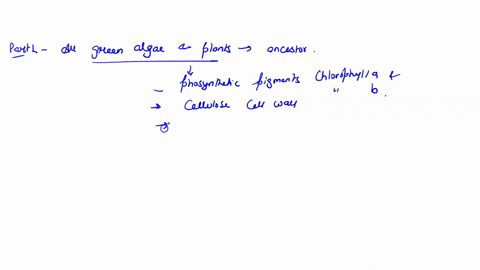 Part 1 - All green algae & plants → ancestor.
↓
- phosynthetic pigments Chlorophyll a &
" b.
→ Cellulose Cell wall
→